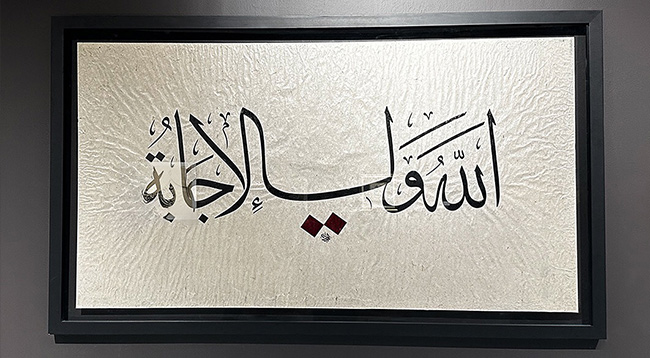 اللّٰهُ وَلي الإجابَةُ